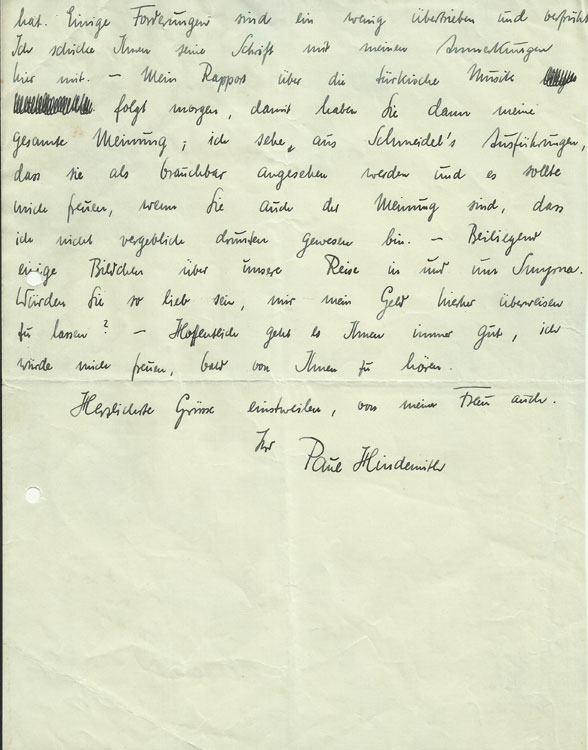 hat. Einige Forderungen sind ein wenig übertrieben und verfrüht
Ich schicke Ihnen seine Schrift mit meinen Anmerkungen
hier mit. – Mein Rapport über die türkische Musik
folgt morgen, damit haben Sie dann meine
gesamte Meinung; ich sehe, aus Schmeidel's Ausführungen,
dass sie als brauchbar angesehen werden und es sollte
mich freuen, wenn Sie auch der Meinung sind, dass
ich nicht vergeblich drunten gewesen bin. – Beiliegend
einige Bildchen über unsere Reise in und um Smyrna.
Würden Sie so lieb sein, mir mein Geld hierher überweisen
zu lassen? – Hoffentlich geht es Ihnen immer gut, ich
würde mich freuen, bald von Ihnen zu hören.
Herzlichste Grüsse einstweilen, von meiner Frau auch.
Ihr
Paul Hindemith